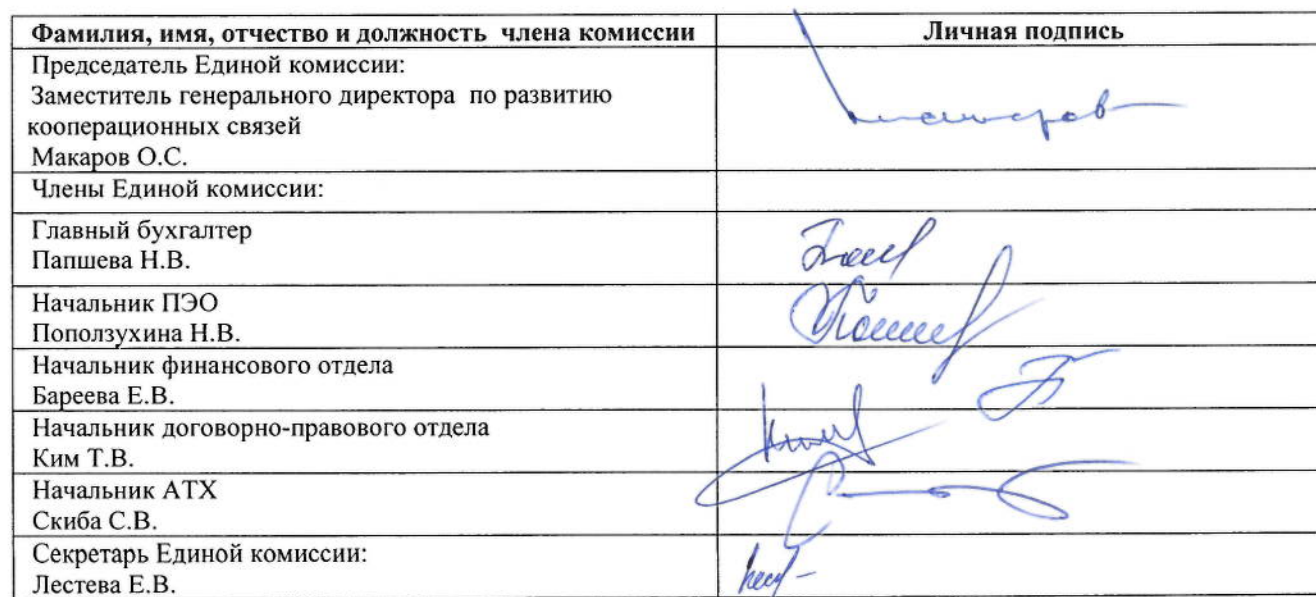 Фамилия, имя, отчество и должность члена комиссии
Личная подпись
Председатель Единой комиссии:
Заместитель генерального директора по развитию
кооперационных связей
Макаров О.С.
Члены Единой комиссии:
Главный бухгалтер
Папшева Н.В.
Начальник ПЭО
Поползухина Н.В.
Начальник финансового отдела
Бареева Е.В.
Начальник договорно-правового отдела
Ким Т.В.
Начальник АТХ
Скиба С.В.
Секретарь Единой комиссии:
Лестева Е.В.